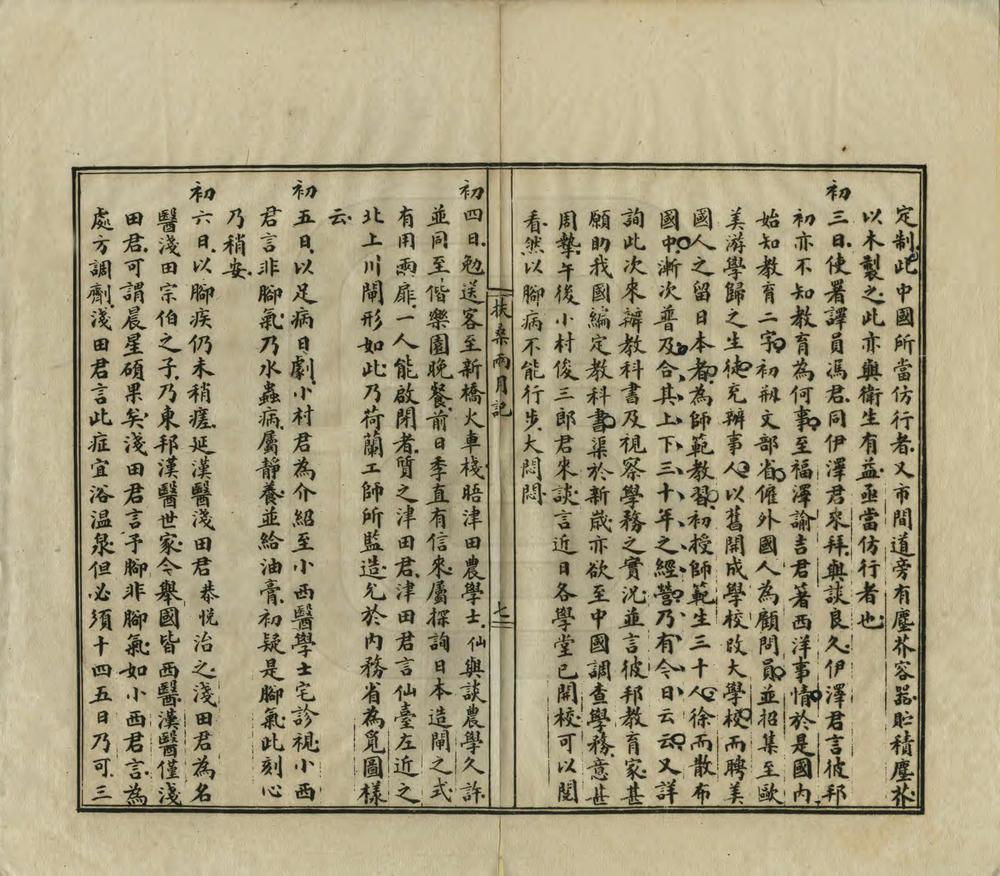 定制此中國所當仿行者又市間道旁有塵芥容器貯積塵芥
以木製之此亦與衛生有益亟當仿行者也
初三日使署譯員馮君同伊澤君來拜與談良久伊澤君言彼邦
初亦不知教育為何事至福澤諭吉君著西洋事情於是國內
始知教育二字初刱文部省僱外國人為顧問員並招集至歐
美游學歸之生徒充辦事人以舊開成學校改大學校而聘美
國人之留日本者為師範教習初授師範生三十人徐而散布
國中漸次普及合其上下三十年之經營乃有今日云云又詳
詢此次來辦教科書及視察學務之實況並言彼邦教育家甚
願助我國編定教科書渠於新歲亦欲至中國調查學務意甚
周摯午後小村俊三郎君來談言近日各學堂已開校可以閱
看然以腳病不能行步大悶悶
扶桑兩月記
七
初四日勉送客至新橋火車棧晤津田農學士仙與談農學久許
並同至偕樂園晚餐前日季直有信來屬探詢日本造閘之式
有用兩扉一人能啟閉者質之津田君津田君言仙臺左近之
北上川閘形如此乃荷蘭工師所監造允於內務省為覓圖樣
云
初五日以足病日劇小村君為介紹至小西醫學士宅診視小西
君言非腳氣乃水蟲病屬靜養並給油膏初疑是腳氣此刻心
乃稍安
初六日以腳疾仍未稍瘥延漢醫淺田君恭悅治之淺田君為名
醫淺田宗伯之子乃東邦漢醫世家今舉國皆西醫漢醫僅淺
田君可謂晨星碩果矣淺田君言予腳非腳氣如小西君言為
處方調劑淺田君言此症宜浴溫泉但必須十四五日乃可三